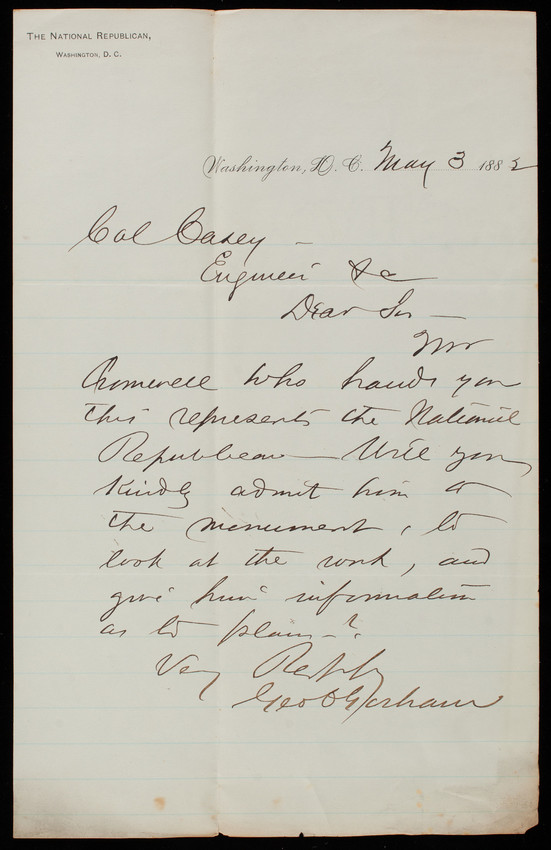 THE NATIONAL REPUBLICAN,
WASHINGTON, D. C.
Washington, D. C. May 3 1882
Col Casey —
Engineer &c
Dear Sir —
Mr
Cromwell who hands you
this represents the National
Republican — Will you
kindly admit him to
the monument, to
look at the work, and
give him information
as to plans—?
Very Respfy
Geo C Gorham